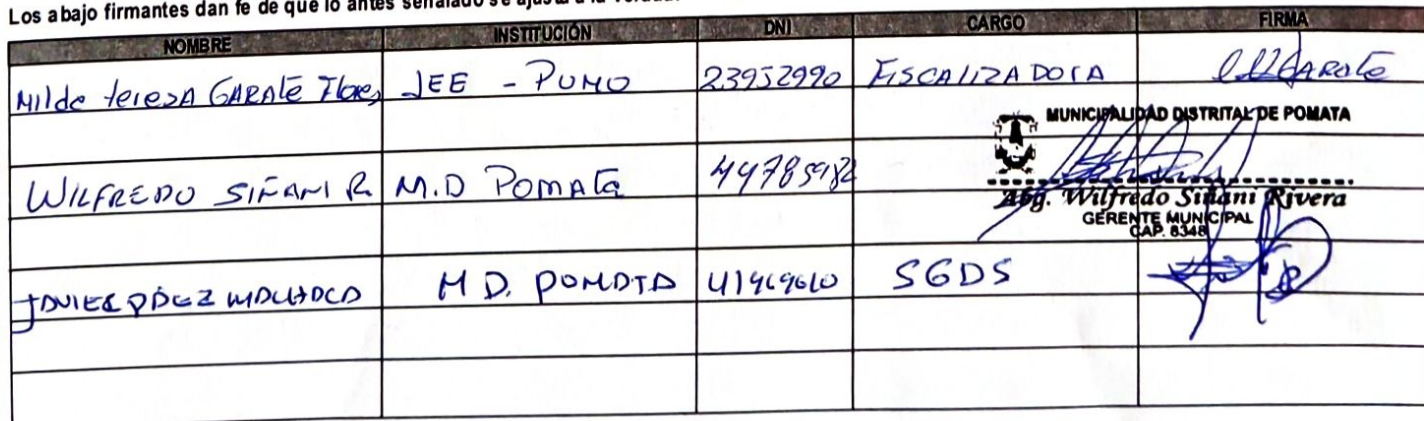 Los abajo firmantes dan fe de que lo antes señalado se ajusta a la
NOMBRE INSTITUCIÓN DNI CARGO FIRMA
Milde teresa GARATE Flores JEE - PUNO 23952990 FISCALIZADORA
MUNICIPALIDAD DISTRITAL DE POMATA
WILFREDO SIÑANI R. M.D POMATA 44785982
Abg. Wilfredo Siñani Rivera
GERENTE MUNICIPAL
CAP. 8348
M D. POMATA 41969610 SGDS